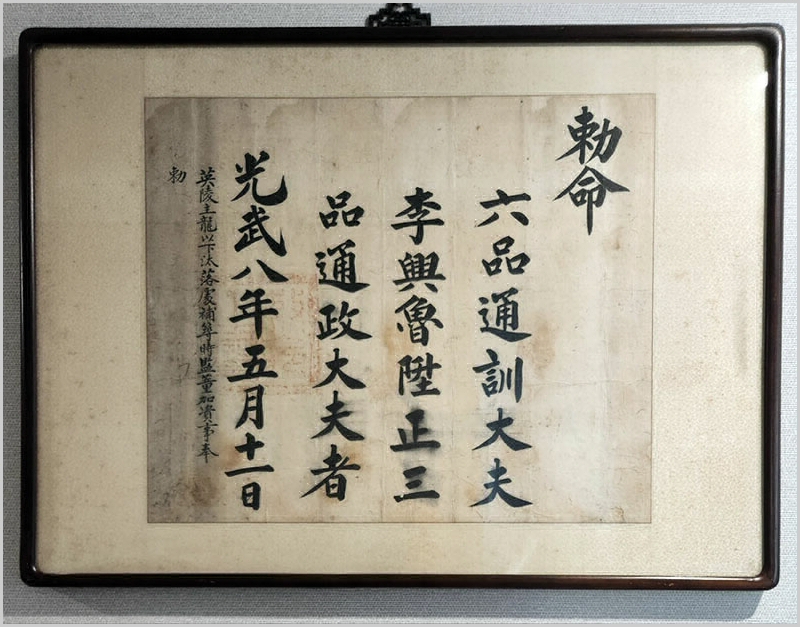 勅命
六品通訓大夫
李興魯陞正三
品通政大夫者
光武八年五月十一日
英陵主龍以下汰落處補筭時監董加資事奉
勅